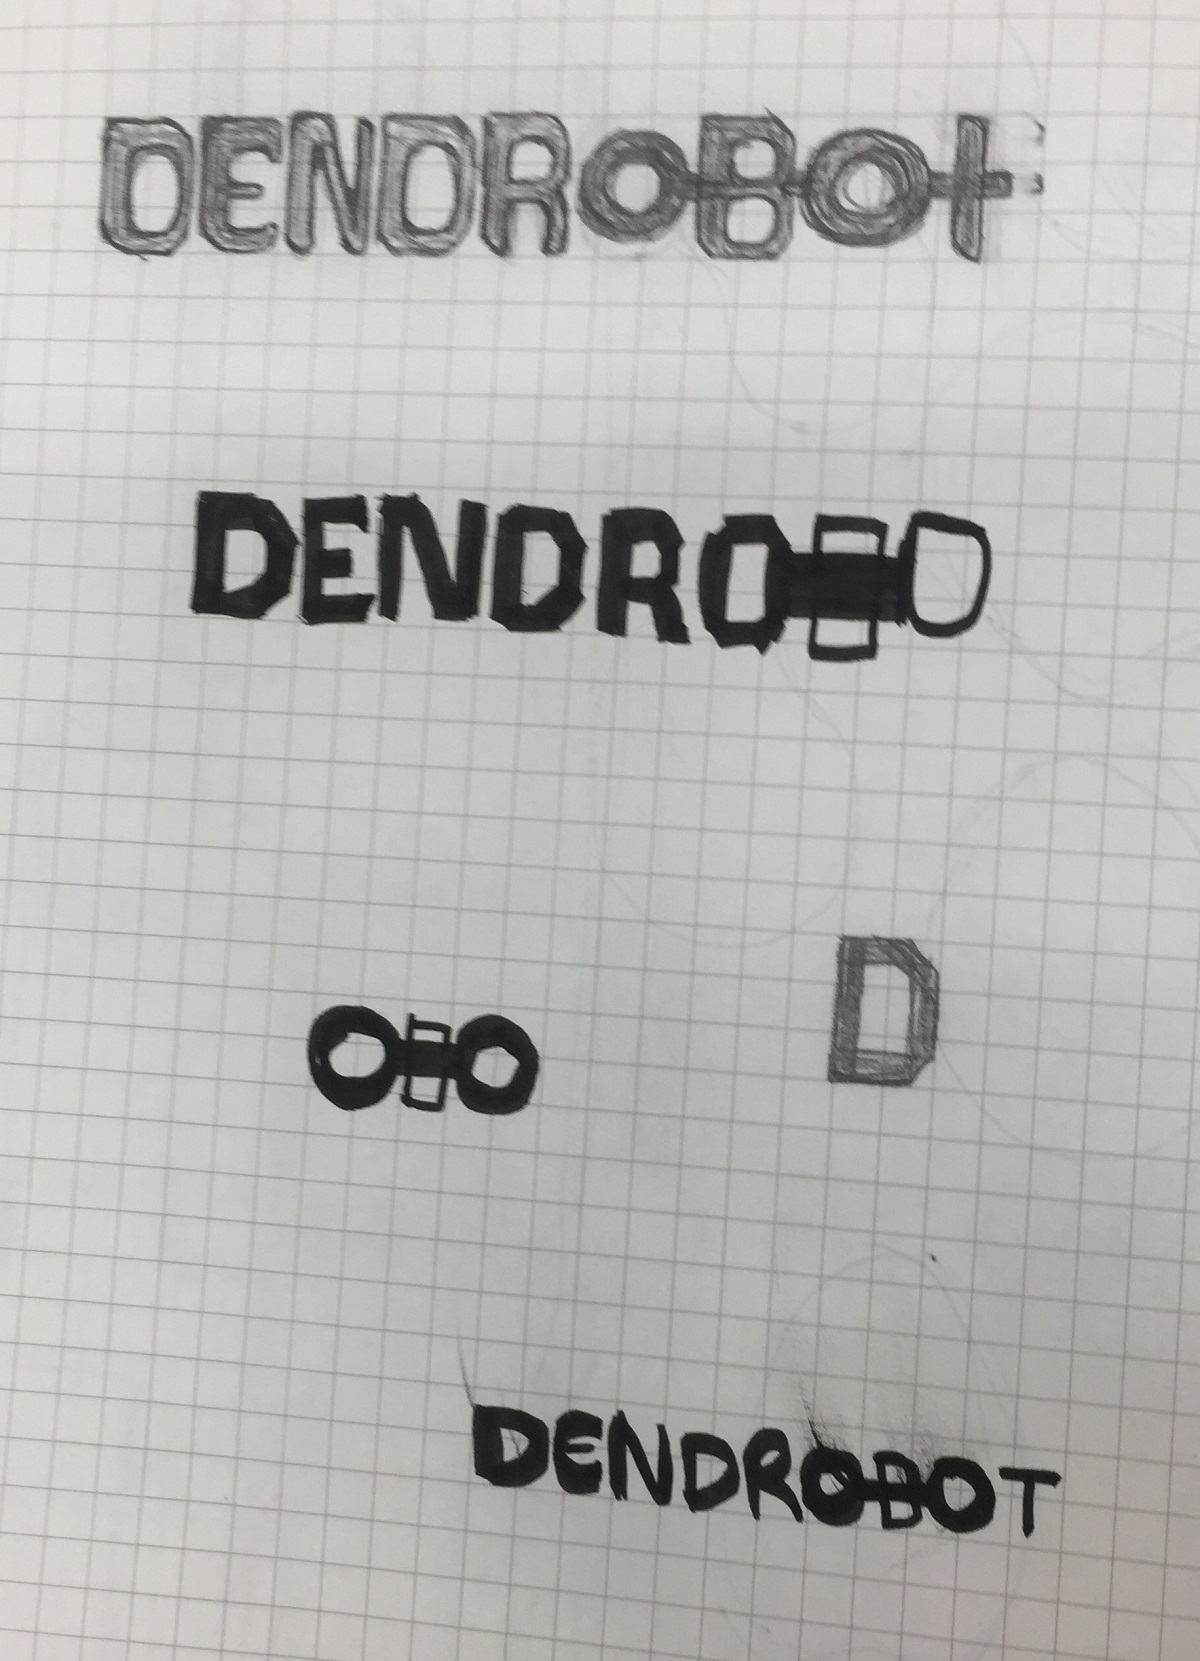 DENDROBOt
DENDROBO
OBO
D
DENDROBOT